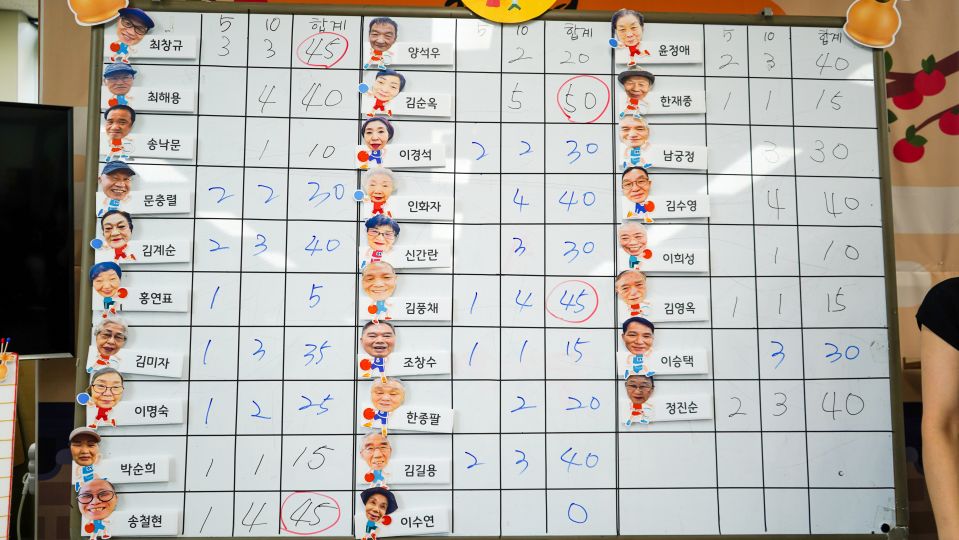 5 10 합계
최창규 3 3 45
최해용 4 40
송낙문 1 10
문충렬 2 2 30
김계순 2 3 40
홍연표 1 5
김미자 1 3 35
이명숙 1 2 25
박순희 1 1 15
송철현 1 4 45
5 10 합계
양석우 2 20
김순옥 5 50
이경석 2 2 30
인화자 4 40
신간란 3 30
김풍채 1 4 45
조창수 1 1 15
한종팔 2 20
김길용 2 3 40
이수연 0
5 10 합계
윤정애 2 3 40
한재종 1 15
남궁정 3 30
김수영 4 40
이희성 1 10
김영옥 1 1 15
이승택 3 30
정진순 2 3 40